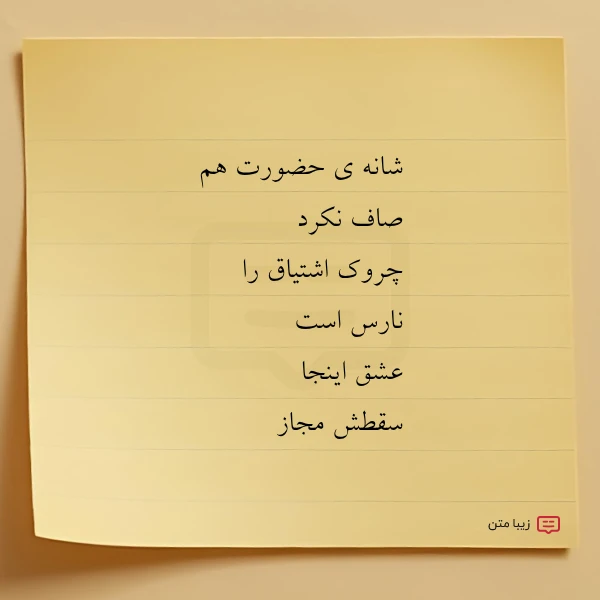 شانه ی حضورت هم
صاف نکرد
چروک اشتیاق را
نارس است
عشق اینجا
سقطش مجاز
زیبا متن